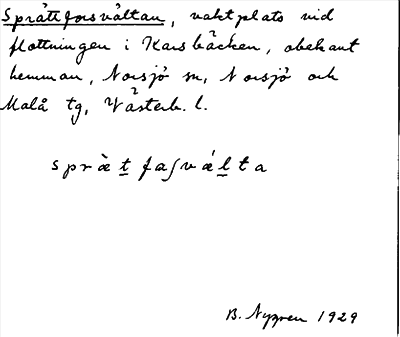 Sprättforsvältan, vaktplats vid
flottningen i Karsbäcken, obekant
hemman, Norsjö sn, Norsjö och
Malå tg, Västerb. l.
sprὰt faʃvάlta
B. Nygren 1929